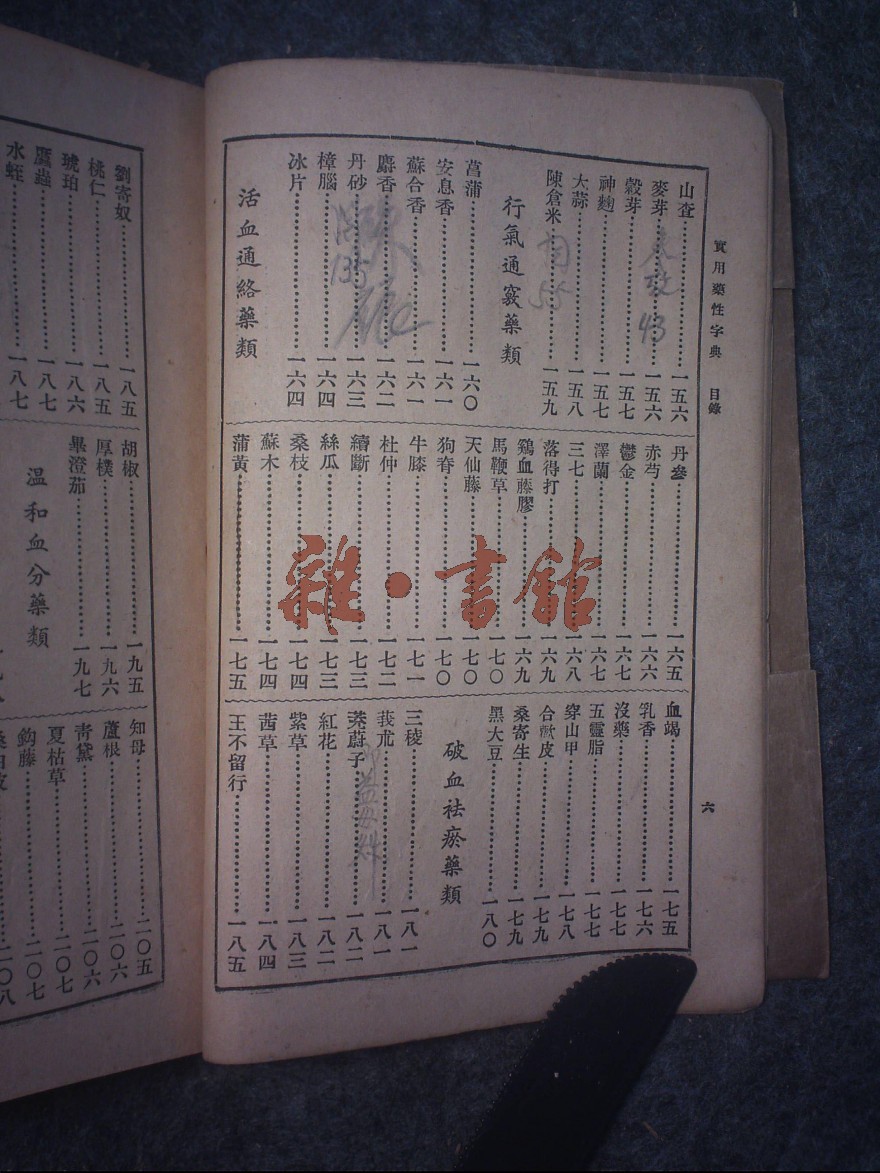 實用藥性字典 目錄
六
山查一五六
麥芽一五六
穀芽一五七
神麴一五七
大蒜一五八
陳倉米一五九
行氣通竅藥類
菖蒲一六〇
安息香一六一
蘇合香一六一
麝香一六二
丹砂一六三
樟腦一六四
冰片一六四
活血通絡藥類
丹參一六五
赤芍一六六
鬱金一六七
澤蘭一六七
三七一六八
落得打一六九
鷄血藤膠一六九
馬鞭草一七〇
天仙藤一七〇
狗脊一七〇
牛膝一七一
杜仲一七二
續斷一七三
絲瓜一七三
桑枝一七四
蘇木一七四
蒲黃一七五
血竭一七五
乳香一七六
沒藥一七七
五靈脂一七七
穿山甲一七八
合歡皮一七九
桑寄生一七九
黑大豆一八〇
破血祛瘀藥類
三稜一八一
莪朮一八一
茺蔚子一八二
紅花一八二
紫草一八三
茜草一八四
王不留行一八五
135
43
55
劉寄奴一八五
桃仁一八五
琥珀一八六
䗪蟲一八七
水蛭一八七
胡椒一九五
厚樸一九六
畢澄茄一九七
温和血分藥類
知母二〇五
蘆根二〇六
靑黛二〇六
夏枯草二〇七
鈎藤二〇七
二〇八
雜·書館